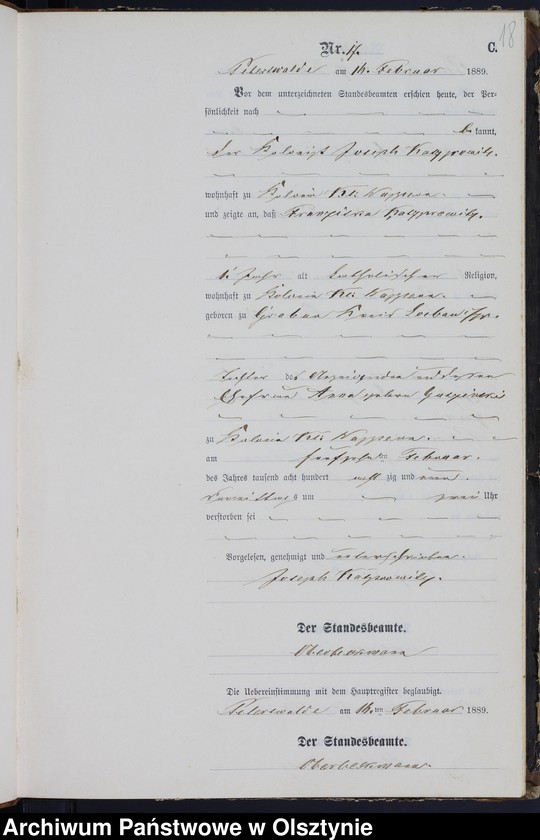 18
Nr. 17. C.
Peterswalde am 16. Februar 1889.
Vor dem unterzeichneten Standesbeamten erschien heute, der Per-
sönlichkeit nach
be kannt,
der Kolonist Joseph
wohnhaft zu Kolonie Kl:
und zeigte an, daß Franziska
1 Jahr alt katholischer Religion,
wohnhaft zu Kolonie Kl:
geboren zu Grabau Kreis Loebau
Tochter des Anzeigenden und dessen
Ehefrau Anna geborene
zu Kolonie Kl:
am fünfzehnten Februar
des Jahres tausend acht hundert acht zig und neun
Vormittags um zwei Uhr
verstorben sei
Vorgelesen, genehmigt und unterschrieben.
Joseph
Der Standesbeamte.
Die Uebereinstimmung mit dem Hauptregister beglaubigt.
Peterswalde am 16. ten Februar 1889.
Der Standesbeamte.
Archiwum Państwowe w Olsztynie